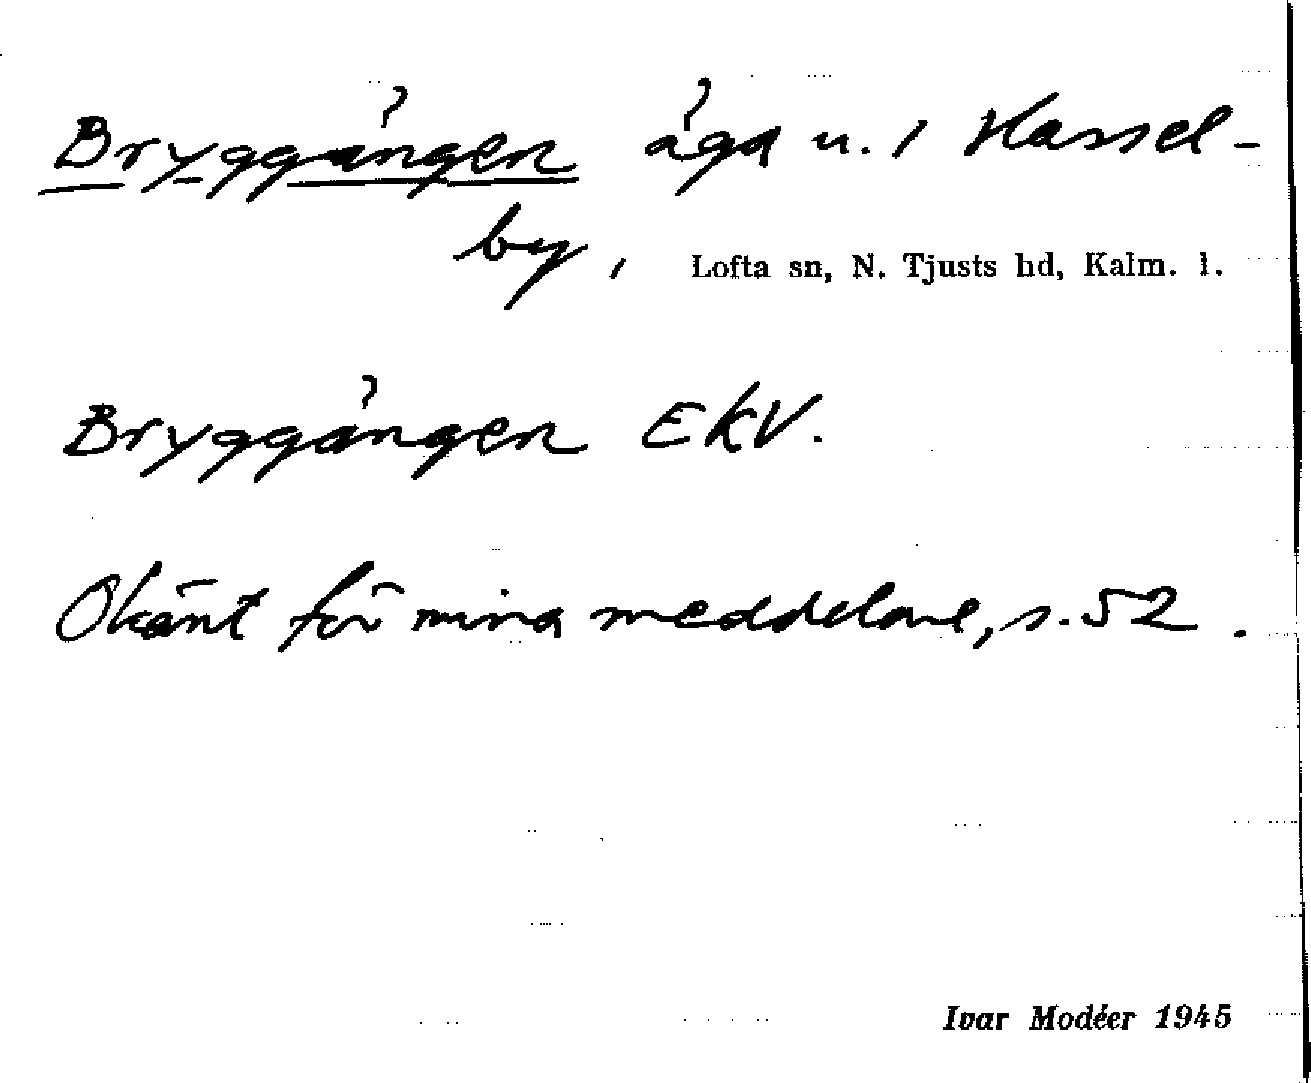 Bryggången åga u. 1 Hassel-
by, Lofta sn, N. Tjusts hd, Kalm. l.
Bryggången EKV.
Okänt för mina meddelare, s. 52.
Ivar Modéer 1945